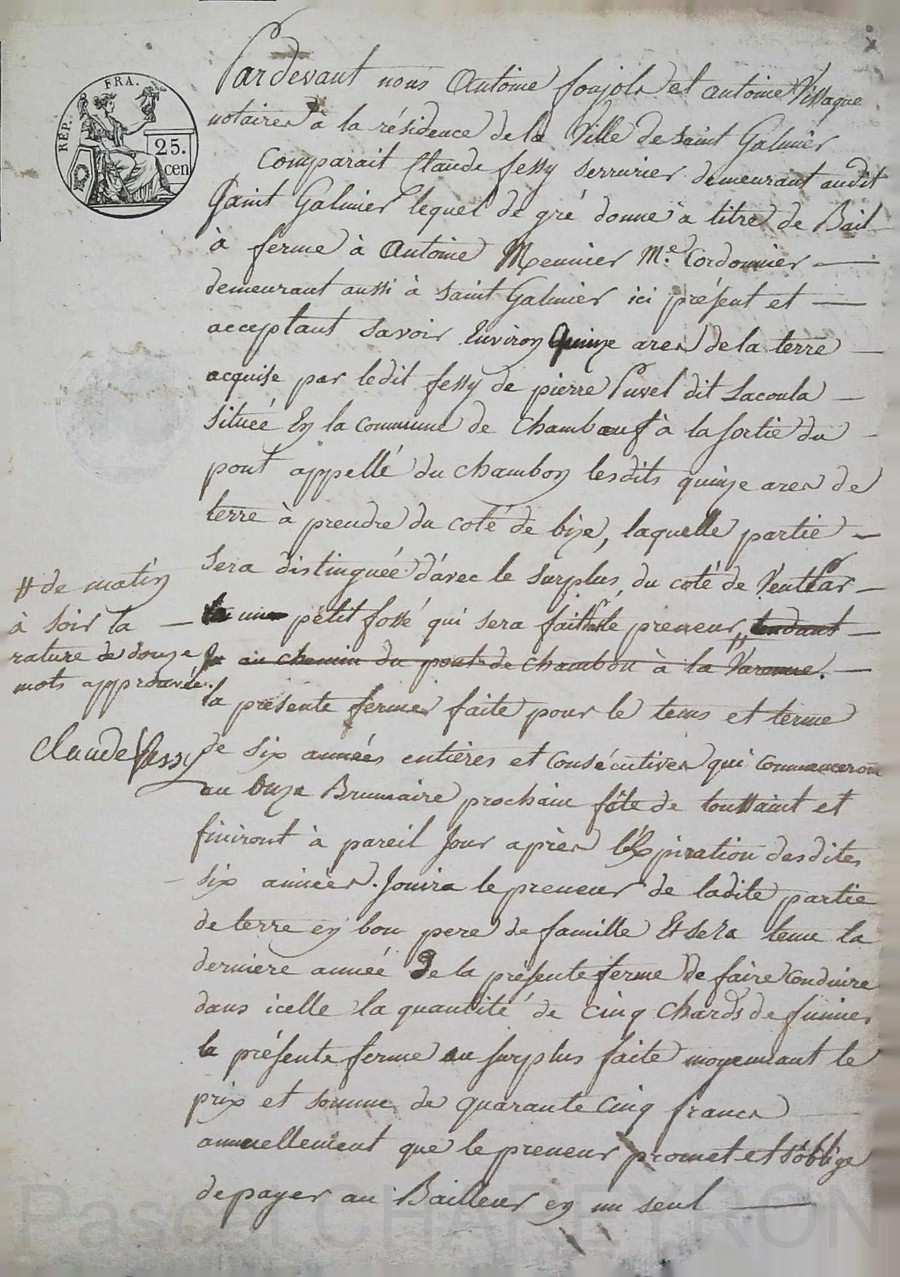 RÉP. FRA.
25.
cen
Pardevant nous Antoine foujols et antoine Vissaque
notaires à la résidence de la Ville de Saint Galmier
Comparait Claude fessy serrurier demeurant audit
Saint Galmier lequel de gré donne à titre de Bail
à ferme à Antoine Meunier Me. Cordonnier
demeurant aussi à Saint Galmier ici présent et
acceptant savoir Environ Quinze ares de la terre
acquise par ledit fessy de pierre Puvel dit Lacoula
située En la Commune de Chambœuf à la sortie du
pont appellé du chambon lesdits quinze ares de
terre à prendre du coté de bize, laquelle partie
sera distinguée d'avec le surplus, du coté de
un petit fossé qui sera fait par le preneur, tendant
au chemin du pont de Chambon à la Varenne.
la présente ferme faite pour le tems et terme
de six années entières et consécutives qui commenceront
au Onze Brumaire prochain fête de toussaint et
finiront à pareil Jour après l'Expiration desdites
six années. Jouira le preneur de ladite partie
de terre en bon pere de famille Et sera tenu la
derniere année De la présente ferme de faire Conduire
dans icelle la quantité de Cinq Chards de fumier
la présente ferme au surplus faite moyennant le
prix et somme de quarante Cinq francs
annuellement que le preneur promet et s'oblige
de payer au Bailleur en un seul
# de matin
à soir la
rature de douze
mots approuvée.
Claude fessy
Pascal CHAPEYRON